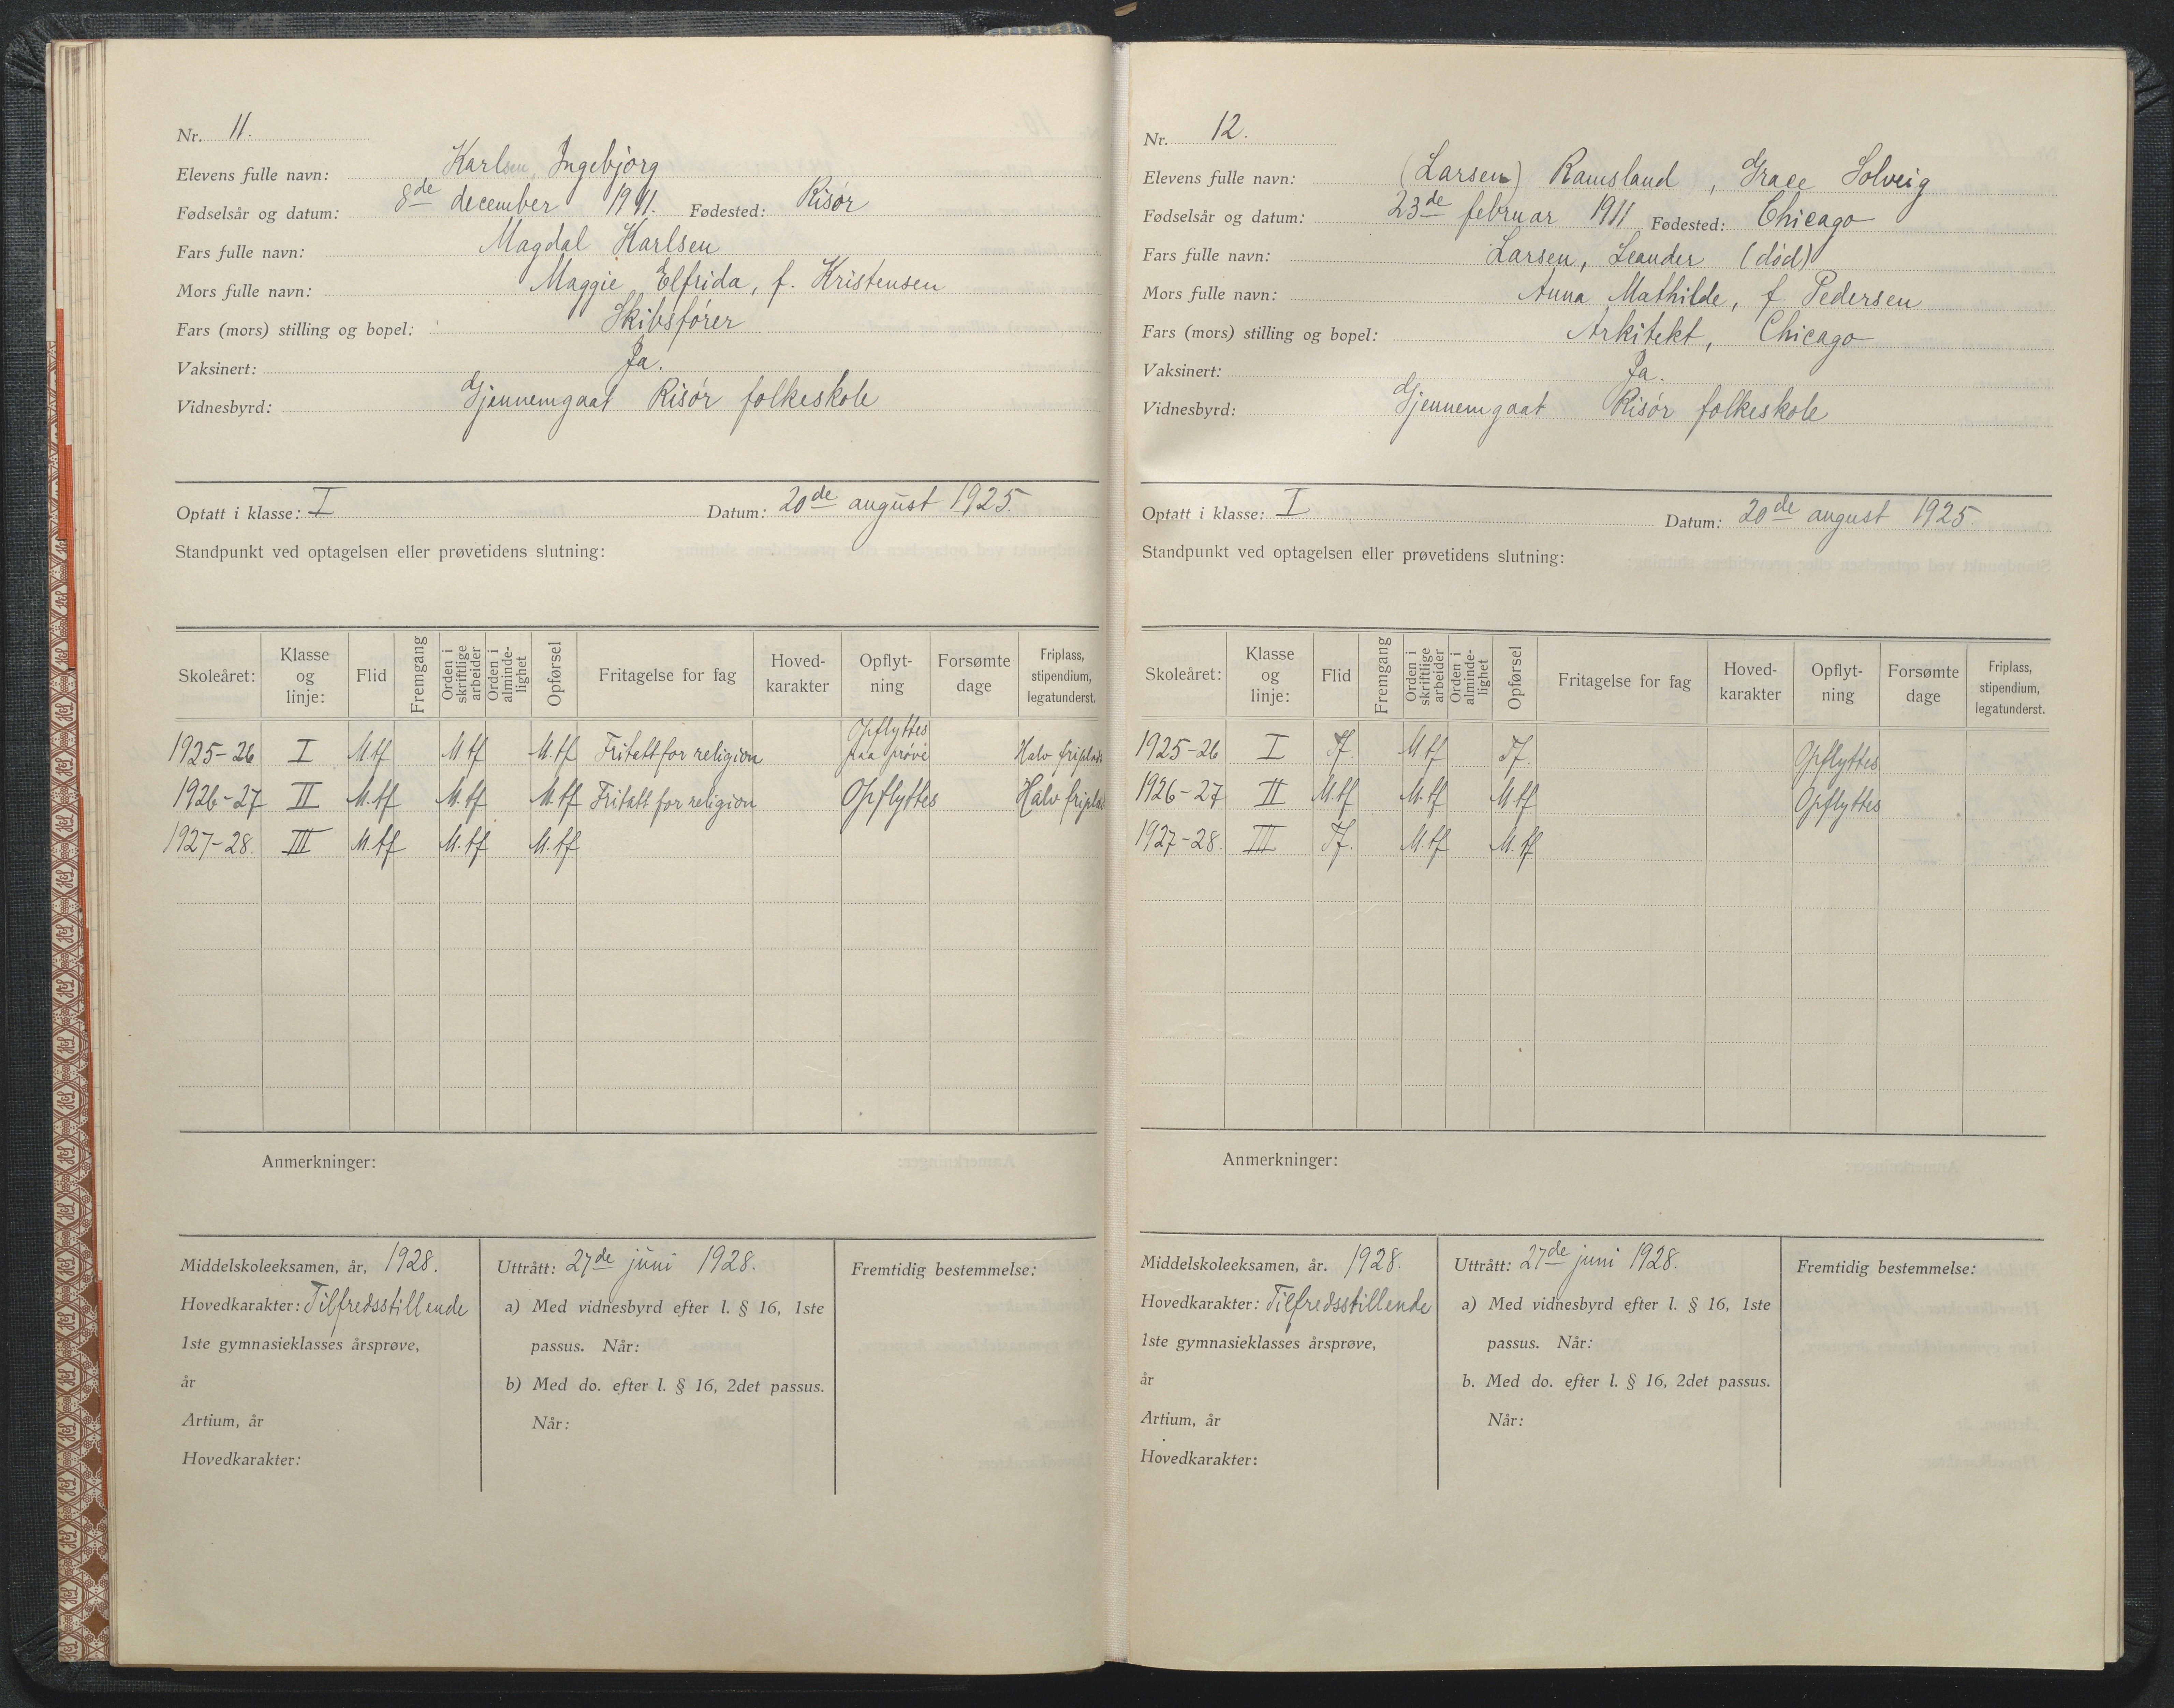 Nr. 11.
Elevens fulle navn: Karlsen, Ingebjørg
Fødselsår og datum: 8de december 1911. Fødested: Risør
Fars fulle navn: Magdal Karlsen
Mors fulle navn: Maggie Elfrida, f. Kristensen
Fars (mors) stilling og bopel: Skibsfører
Vaksinert: Ja.
Vidnesbyrd: Gjennemgaat Risør folkeskole
Optatt i klasse: I Datum: 20de august 1925.
Standpunkt ved optagelsen eller prøvetidens slutning:
Skoleåret: Klasse og linje: Flid Fremgang Orden i skriftlige arbeider Orden i alminde-lighet Opførsel Fritagelse for fag Hoved-karakter Opflyt-ning Forsømte dage Friplass, stipendium, legatunderst.
1925-26 I M.tf M.tf M.tf Fritatt for religion Opflyttes paa prøve Halv friplads
1926-27 II M.tf M.tf M.tf Fritatt for religion Opflyttes Halv friplads
1927-28. III M.tf M.tf M.tf
Anmerkninger:
Middelskoleeksamen, år, 1928.
Hovedkarakter: Tilfredsstillende
1ste gymnasieklasses årsprøve,
år
Artium, år
Hovedkarakter:
Uttrått: 27de juni 1928.
a) Med vidnesbyrd efter l. § 16, 1ste
passus. Når:
b) Med do. efter l. § 16, 2det passus.
Når:
Fremtidig bestemmelse:
Nr. 12.
Elevens fulle navn: (Larsen) Ramsland, Grace Solveig
Fødselsår og datum: 23de februar 1911 Fødested: Chicago
Fars fulle navn: Larsen, Leander (død)
Mors fulle navn: Anna Mathilde, f. Pedersen
Fars (mors) stilling og bopel: Arkitekt, Chicago
Vaksinert: Ja.
Vidnesbyrd: Gjennemgaat Risør folkeskole
Optatt i klasse: I Datum: 20de august 1925.
Standpunkt ved optagelsen eller prøvetidens slutning:
Skoleåret: Klasse og linje: Flid Fremgang Orden i skriftlige arbeider Orden i alminde-lighet Opførsel Fritagelse for fag Hoved-karakter Opflyt-ning Forsømte dage Friplass, stipendium, legatunderst.
1925-26 I Tf. M.tf Tf. Opflyttes
1926-27 II M.tf M.tf M.tf Opflyttes
1927-28. III Tf. M.tf M.tf
Anmerkninger:
Middelskoleeksamen, år. 1928.
Hovedkarakter: Tilfredsstillende
1ste gymnasieklasses årsprøve,
år
Artium, år
Hovedkarakter:
Uttrått: 27de juni 1928.
a) Med vidnesbyrd efter l. § 16, 1ste
passus. Når:
b. Med do. efter l. § 16, 2det passus.
Når:
Fremtidig bestemmelse: